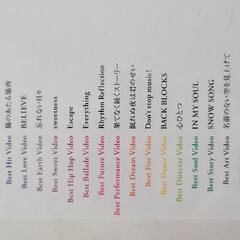 Best Hit Video 陽のあたる場所
Best Love Video BELIEVE
Best Earth Video 忘れない日々
Best Sweet Video sweetness
Best Hip Hop Video Escape
Best Ballade Video Everything
Best Future Video Rhythm Reflection
Best Performance Video 果てなく続くストーリー
Best Dream Video 眠れぬ夜は君のせい
Best Fire Video Don't stop music!
Best Dance Video BACK BLOCKS
Best Director Video 心ひとつ
Best Soul Video IN MY SOUL
Best Story Video SNOW SONG
Best Art Video 名前のない空を見上げて